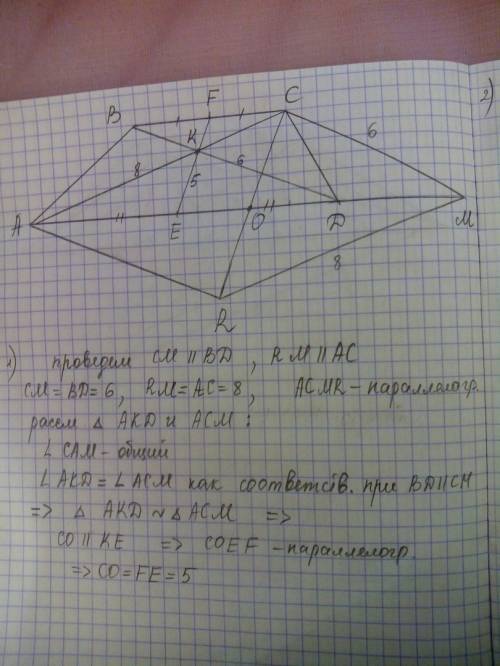 2)
B F C
K
8 6 6
5
A E O D M
8
R
1) проведем CM || BD , RM || AC
CM = BD = 6, RM = AC = 8, ACMR - параллелогр.
рассм △ AKD и ACM :
∠ CAM - общий
∠ AKD = ∠ ACM как соответств. при BD || CM
=> △ AKD ~ △ ACM =>
CO || KE => COEF - параллелогр.
=> CO = FE = 5